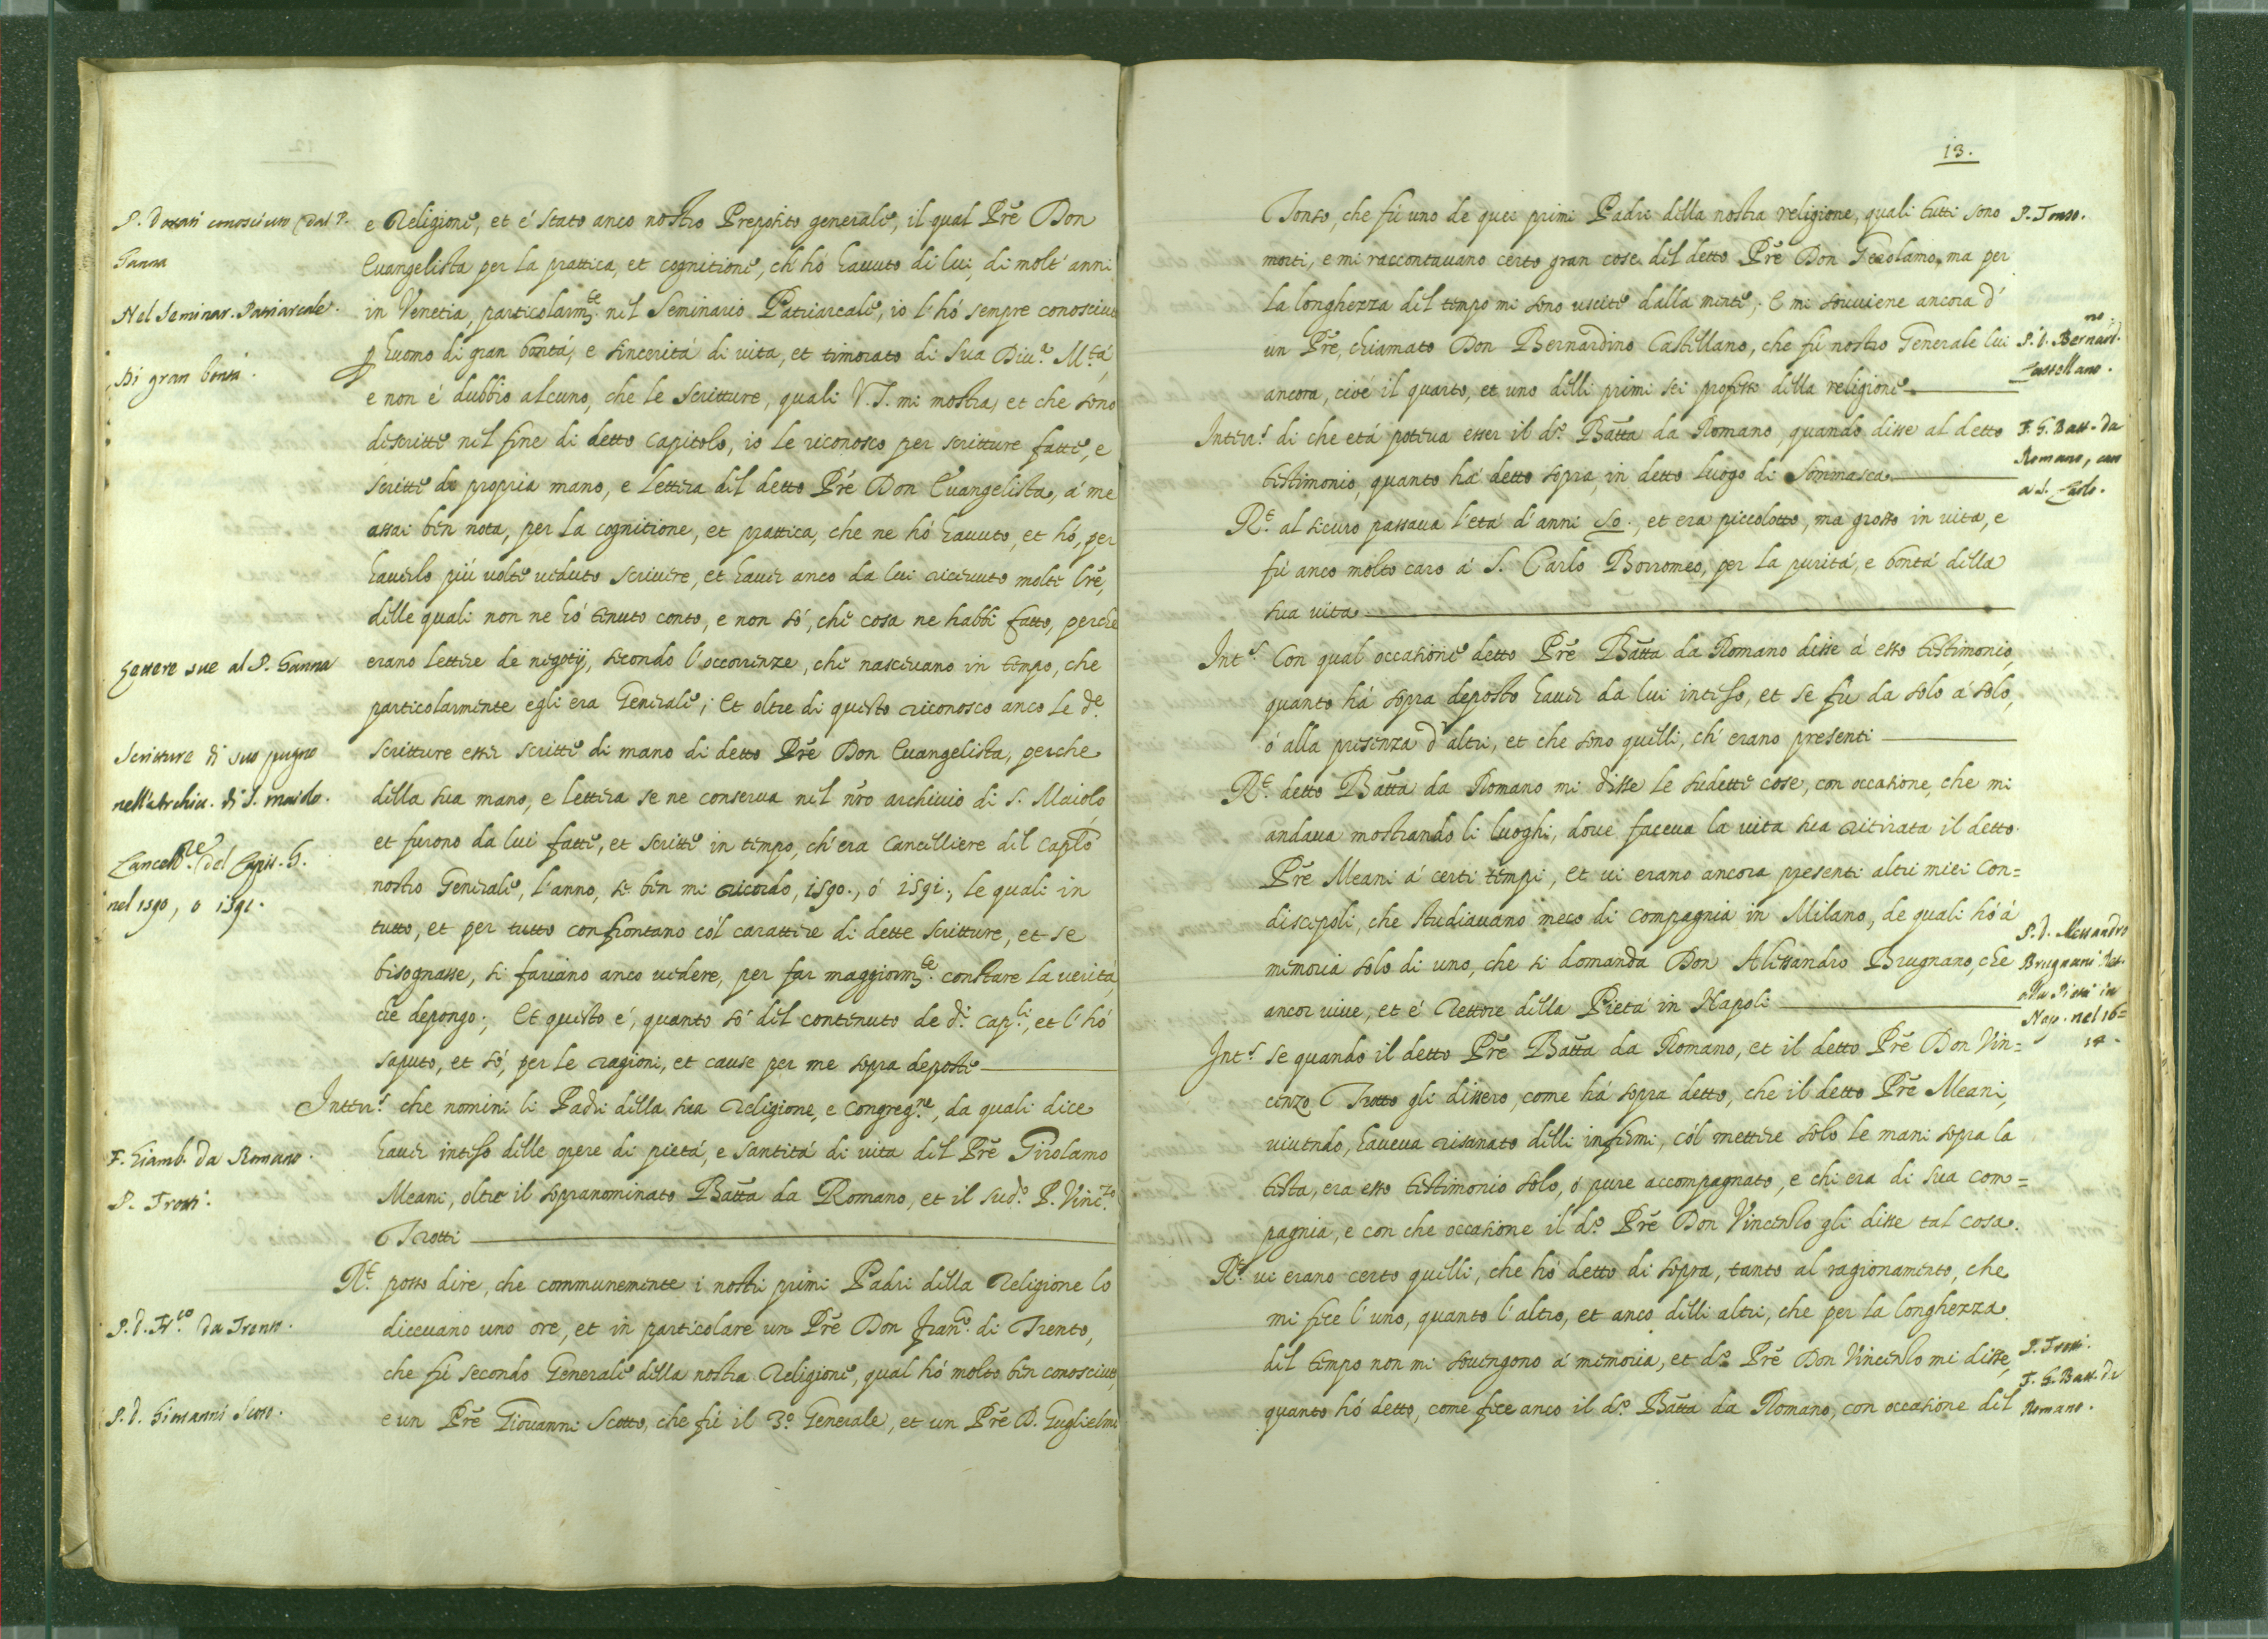 P. Dorati conosciuto dal P.
Ganna
Nel Seminar. Patriarcale.
Di gran bontà.
Lettere sue al P. Ganna
Scritture di suo pugno
nell'Archiv. di S. Maiolo.
Cancell.re del Capit. G.
nel 1590, o 1591.
F. Giamb. da Romano.
P. Trotti.
P. d. Fr.co da Trento.
P. d. Giovanni Scoto.
e Religione, et é stato anco nostro Preposito generale, il qual Pre Don
Euangelista per la prattica, et cognitione, ch'hó hauuto di lui di molt'anni
in Venetia, particolarm.te nel Seminario Patriarcale, io l'hó sempre conosciuto
p huomo di gran bontá, e sinceritá di uita, et timorato di Sua Diu.a M.tá,
e non é dubbio alcuno, che le Scritture, quali V.S. mi mostra, et che sono
descritte nel fine di detto capitolo, io le riconosco per scritture fatte, e
scritte de propria mano, e lettera del detto Pré Don Euangelista, á me
assai ben nota, per la cognitione, et prattica, che ne hó hauuto, et hó, per
hauerlo piú uolte ueduto scriuere, et hauer anco da lui riceuuto molte lre,
delle quali non ne hó tenuto conto, e non só, che cosa ne habbi fatto, perche
erano lettere de negotij, secondo l'occorrenze, che nasceuano in tempo, che
particolarmente egli era Generale; Et oltre di questo riconosco anco le de.
scritture esser scritte di mano di detto Pre Don Euangelista, perche
della sua mano, e lettera se ne conserua nel nro archiuio di S. Maiolo,
et furono da lui fatte, et scritte in tempo, ch'era Cancelliere del Caplo
nostro Generale, l'anno, se ben mi ricordo, 1590., ó 1591., le quali in
tutto, et per tutto confrontano cól carattere di dette scritture, et se
bisognasse, si fariano anco uedere, per far maggiorm.te constare la veritá,
che depongo; Et questo é, quanto só del contenuto de d.i cap.li, et l'hó
saputo, et só, per le ragioni, et cause per me sopra deposte
Interr.s che nomini li Padri della sua Religione, e Congreg.ne, da quali dice
hauer inteso delle opere di pietá, e santitá di uita del Pre Girolamo
Meani, oltre il sopranominato Batta da Romano, et il sud.o P. Vinc.zo
Trotti
R.t posso dire, che communemente i nostri primi Padri della Religione lo
diceuano uno ore, et in particolare un Pre Don Fran.co di Trento,
che fú secondo Generale della nostra Religione, qual hó molto ben conosciuto,
e un Pre Giouanni Scotto, che fú il 3.o Generale, et un Pre D. Guglielmo
13.
Tonso, che fú uno de quei primi Padri della nostra religione, quali tutti sono
morti, e mi raccontauano certo gran cose del detto Pre Don Gerolamo, ma per
la longhezza del tempo mi sono uscite dalla mente; E mi souuiene ancora d'
un Pre, chiamato Don Bernardino Castellano, che fú nostro Generale lui
ancora, cioé il quarto, et uno delli primi sei professi della religione.
Interr.s di che etá poteua esser il d.o Batta da Romano, quando disse al detto
testimonio, quanto há detto sopra, in detto luogo di Sommasca.
R.t al sicuro passaua l'etá d'anni 50., et era piccolotto, ma grosso in uita, e
fú anco molto caro á S. Carlo Borromeo, per la puritá, e bontá della
sua uita
Int.s Con qual occasione detto Pre Batta da Romano disse á esso testimonio,
quanto há sopra deposto hauer da lui inteso, et se fu da solo á solo,
ó alla presenza d'altri, et che sono quelli, ch'erano presenti
R.t detto Batta da Romano mi disse le sudette cose, con occasione, che mi
andaua mostrando li luoghi, doue faceua la uita sua ritirata il detto
Pre Meani á certi tempi, et ui erano ancora presenti altri miei con=
discepoli, che studiauano meco di compagnia in Milano, de quali hó á
memoria solo di uno, che si domanda Don Alessandro Brugnano, che
ancor uiue, et é Rettore della Pietá in Napoli
Int.s se quando il detto Pre Batta da Romano, et il detto Pre Don Vin=
cenzo Trotto gli dissero, come há sopra detto, che il detto Pre Meani,
uiuendo, haueua risanato delli infermi, cól mettere solo le mani sopra la
testa, era esso testimonio solo, ó pure accompagnato, e chi era di sua com=
pagnia, e con che occasione il d.o Pre Don Vincenso gli disse tal cosa.
R.t ui erano certo quelli, che hó detto di sopra, tanto al ragionamento, che
mi fece l'uno, quanto l'altro, et anco delli altri, che per la longhezza
del tempo non mi souengono á memoria, et d.o Pre Don Vincenso mi disse,
quanto hó detto, come fece anco il d.o Batta da Romano, con occasione del
P. Tonso.
P. d. Bernard.no
Castellano.
F. G. Batt. da
Romano, caro
a S. Carlo.
P. d. Alessandro
Brugnani Ret.
alla Pietà in
Nap. nel 16=
14.
P. Trotti.
F. G. Batt. da
Romano.